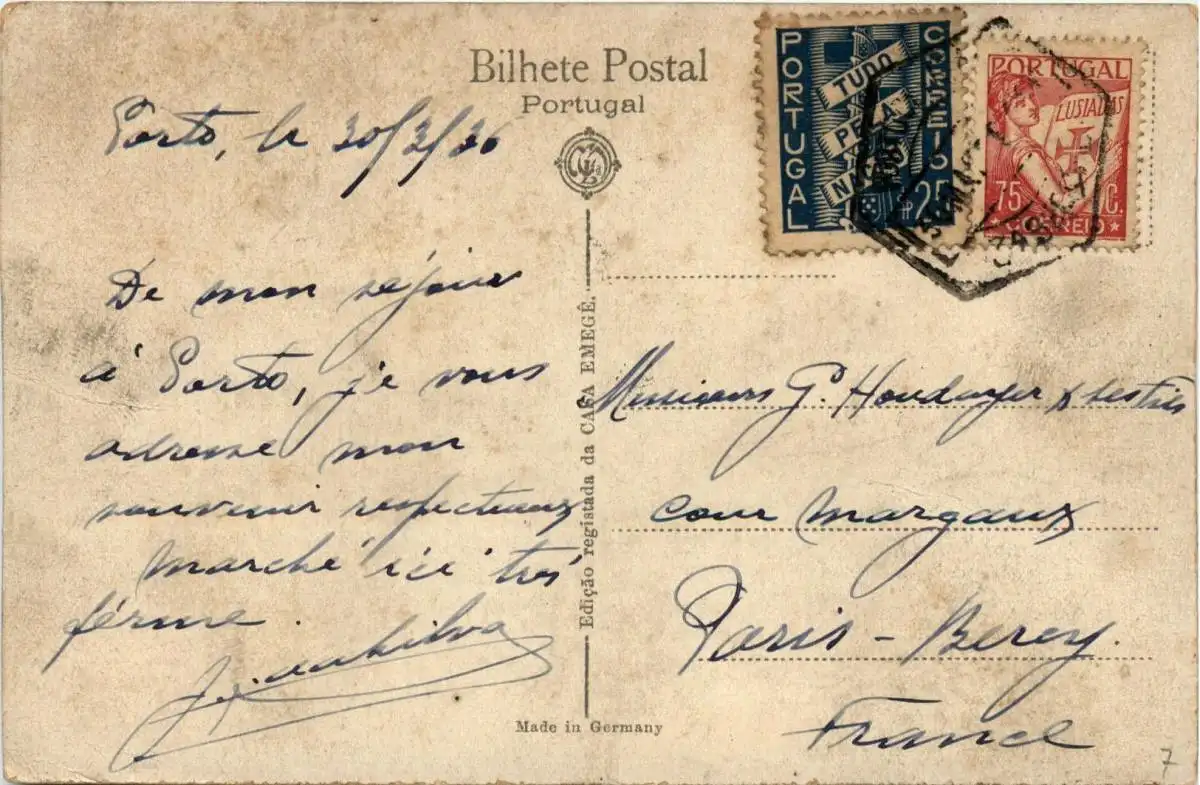 Bilhete Postal
Portugal
Porto, le 30/3/36
De mon séjour
à Porto, je vous
adresse mon
souvenir respectueux
Marché ici très
férme.
Silva
Edição registada da CASA EMEGÊ.
Made in Germany
PORTUGAL
CORREIO
TUDO
PELA
NAÇÃO
$25
PORTUGAL
LUSIADAS
75 C.
CORREIO
Messieurs G.
cour Margaux
Paris - Bercy.
France
7